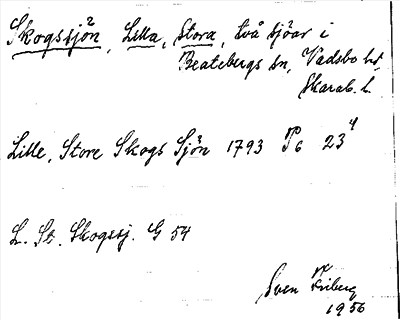 Skogssjön², Lilla, Stora, två sjöar i
Beatebergs sn, Vadsbo hd,
Skarab. l.
Lille, Store Skogs Sjön 1793 P6 23⁴
L. St. Skogssj. G 54
Sven Friberg
1956